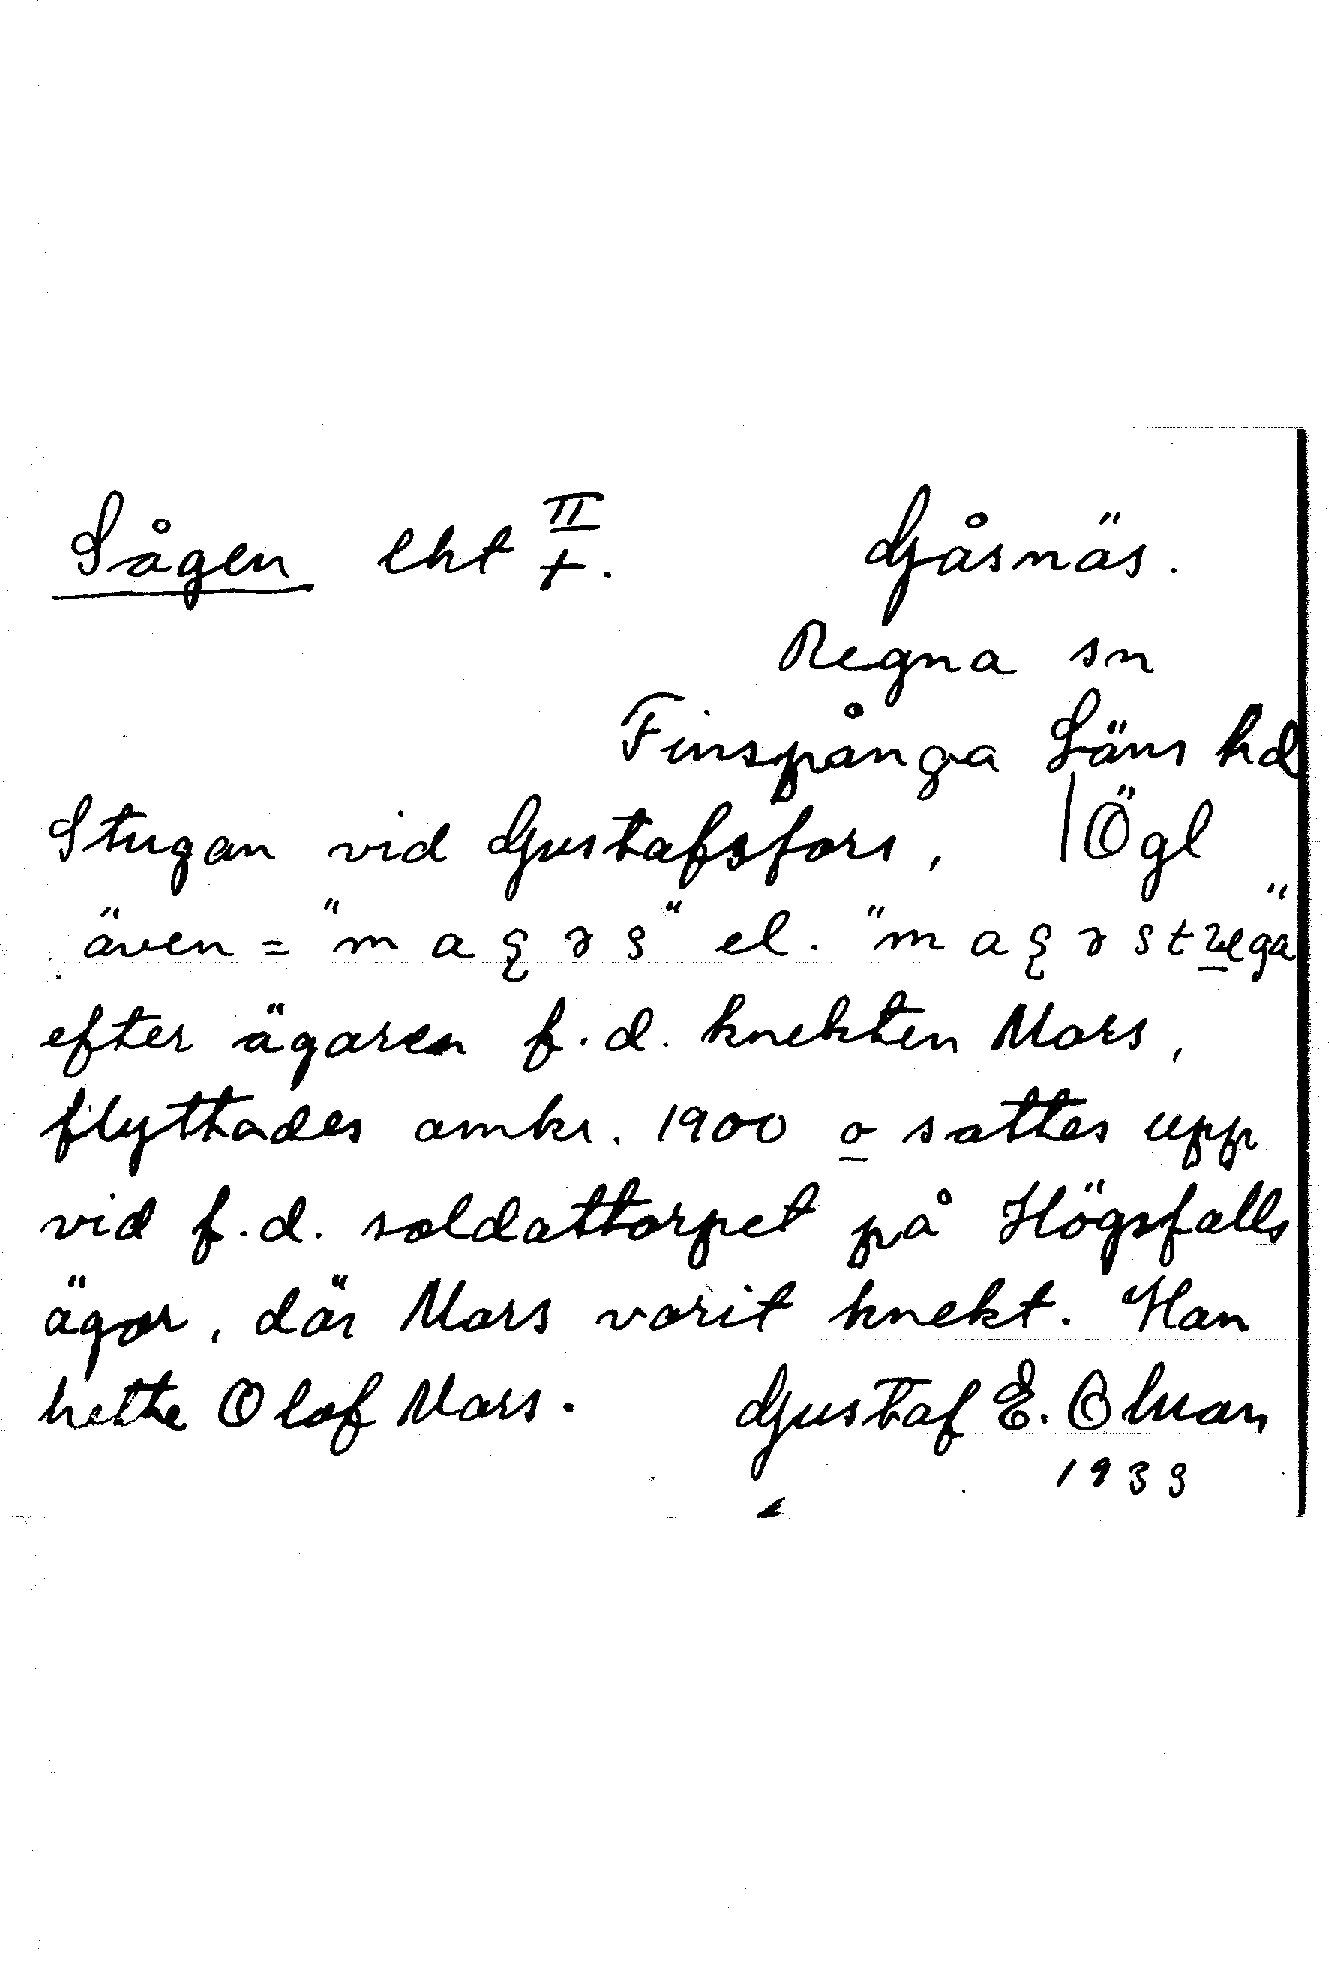 Sågen lht II/+. Gåsnäs.
Regna sn
Finspånga Läns hd
Stugan vid Gustafsfors, /Ögl
även = "
efter ägaren f.d. knekten Mars,
flyttades omkr. 1900 o sattes upp
vid f.d. soldattorpet på Högsfalls
ägor, där Mars varit knekt. Han
hette Olof Mars. Gustaf E. Olman
1933